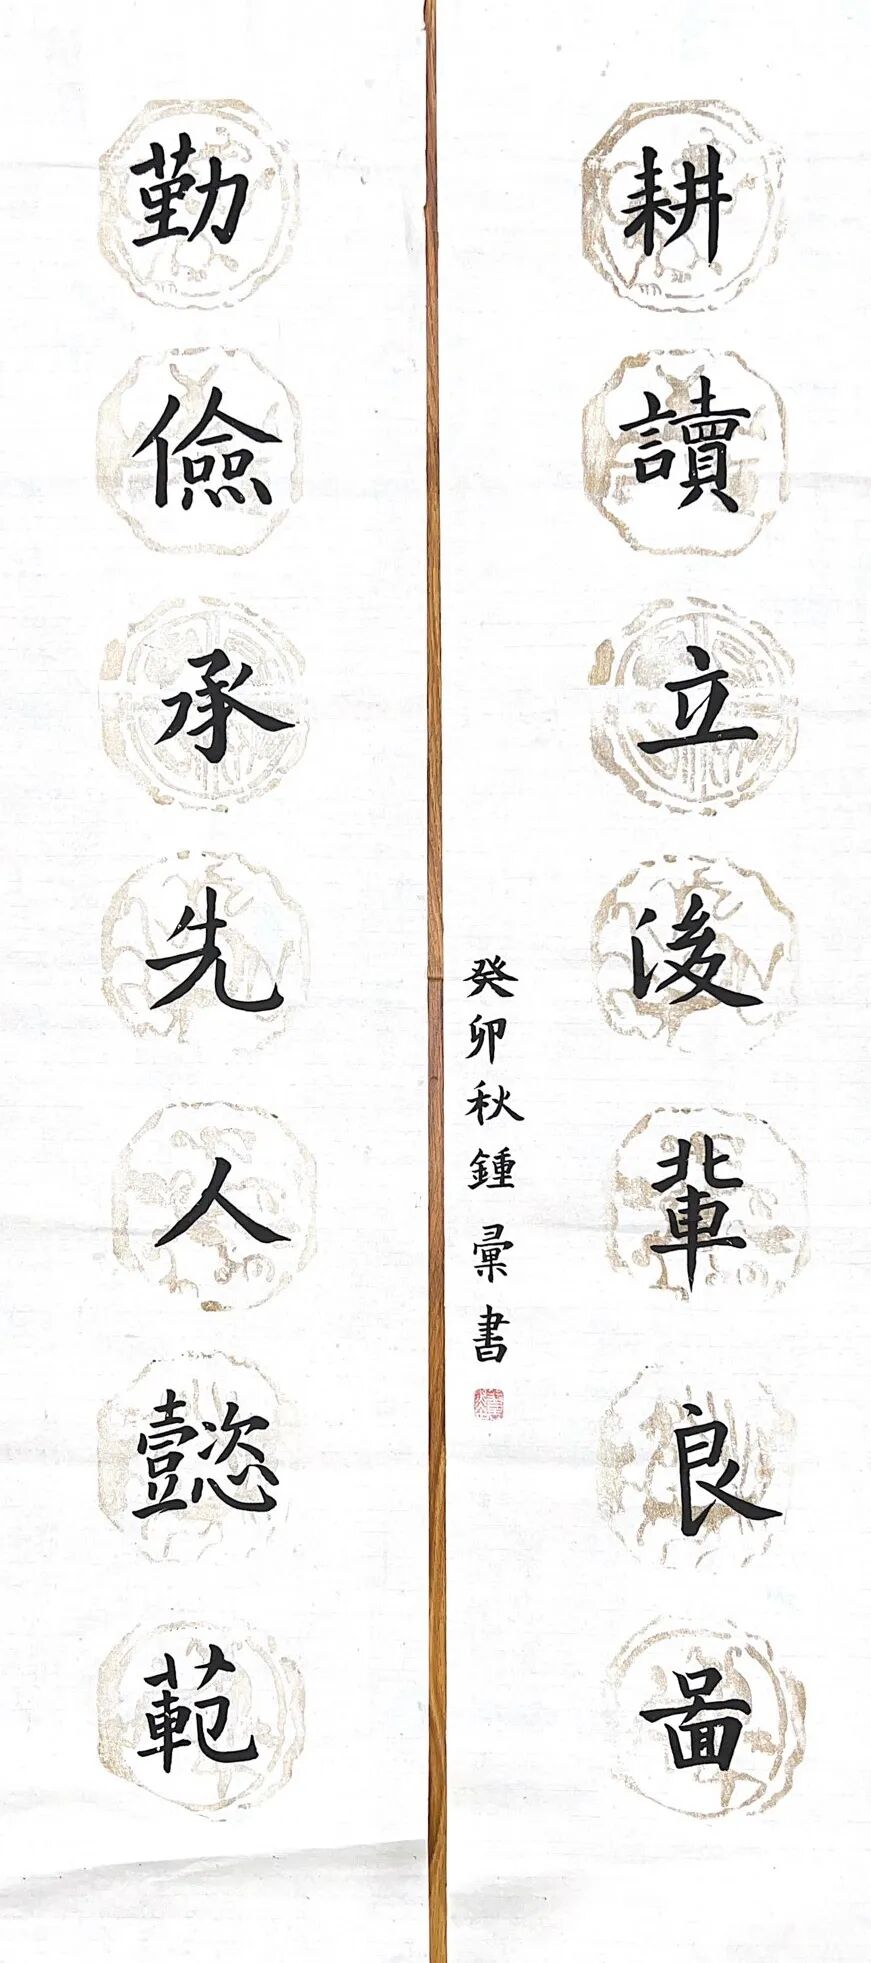 耕讀立後輩良啚
癸卯秋鍾彙書
勤儉承先人懿範